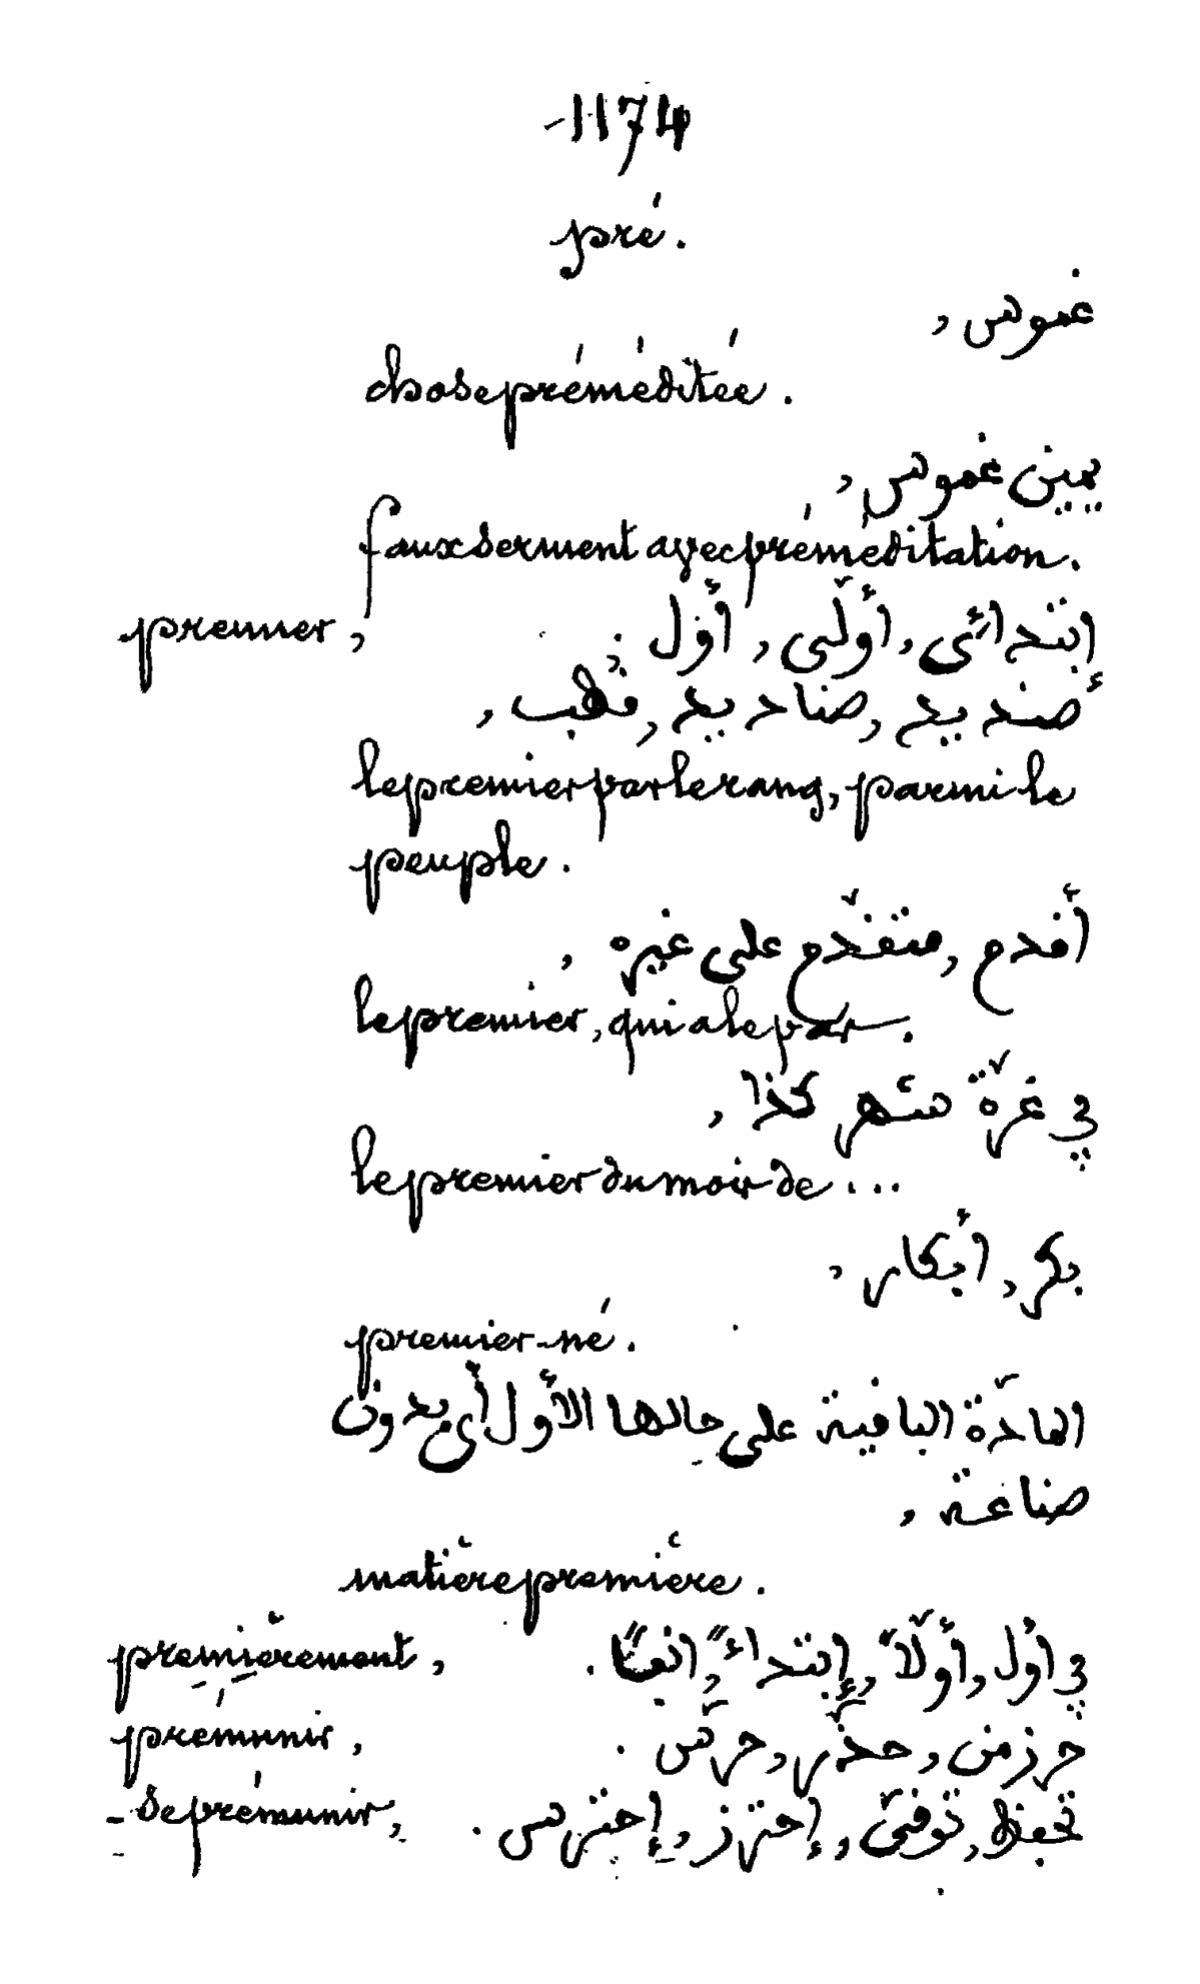 1174
pré.
غموس ,
chose préméditée.
يمين غموس ,
faux serment avec préméditation.
premier, ابتدائى , أوّلى , أوّل .
صنديد , صناديد , قطب ,
le premier par le rang, parmi le
peuple.
أقدم , متقدّم على غيره ,
le premier, qui a le par.
في غرّة شهر كذا ,
le premier du mois de...
بكر , أبكار ,
premier-né.
المادّة الباقية على حالها الأوّل أى بدون
صناعة ,
matière première.
premièrement, في اوّل , أوّلاً , إبتداءً , انفًا .
prémunir, حرز من , حذّر , حرّس .
- se prémunir, تحفظ , توقّى , إحترز , إحترس .